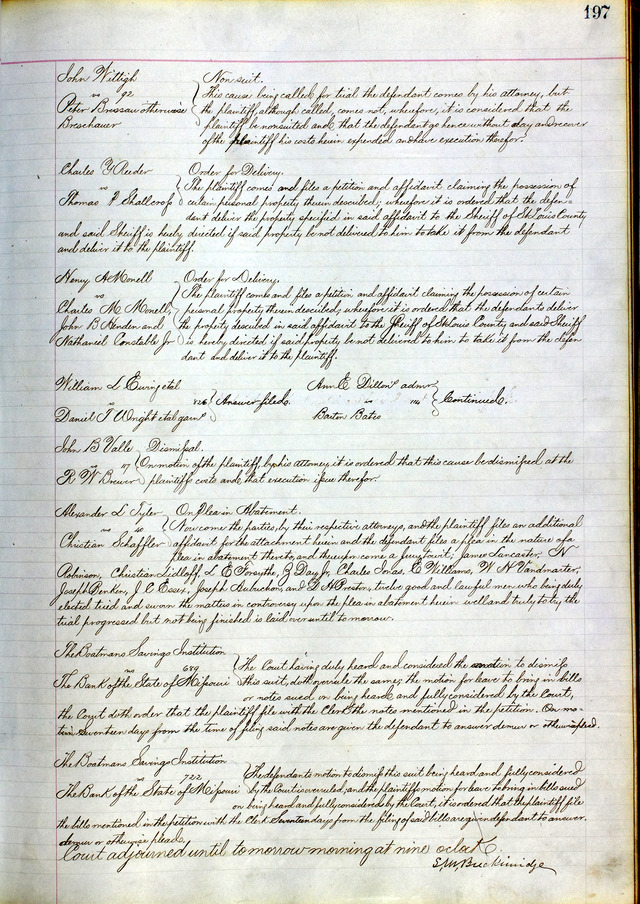 197
John Wittigh
vs 92
Peter Bressaw otherwise
Breschauer
Non suit.
This cause being called for trial the defendant comes by his attorney, but
the plaintiff, although called, comes not, wherefore, it is considered that the
plaintiff be nonsuited and that the defendant go hence without day and recover
of the plaintiff his costs herein expended and have execution therefor.
Charles Y Reeder
vs
Thomas P Shallcross
Order for Delivery.
The plaintiff comes and files a petition and affidavit claiming the possession of
certain personal property therein described; wherefore it is ordered that the defen-
dant deliver the property specified in said affidavit to the Sheriff of St Louis County
and said Sheriff is hereby directed if said property be not delivered to him to take it from the defendant
and deliver it to the plaintiff.
Henry A Monell
vs
Charles M. Monell,
John B. and
Nathaniel Constable Jr
Order for Delivery.
The plaintiff comes and files a petition and affidavit claiming the possession of certain
personal property therein described; wherefore it is ordered that the defendants deliver
the property described in said affidavit to the Sheriff of St Louis County and said Sheriff
is hereby directed if said property be not delivered to him to take it from the defen
dant and deliver it to the plaintiff.
William L Ewing et al
Daniel T Wright et al
Answer filed.
Ann E. Dillon admr
vs
Barton Bates
Continued.
John B Valle
vs 17
R W Brewer
Dismissal.
On motion of the plaintiff, by his attorney, it is ordered that this cause be dismissed at the
plaintiffs costs and that execution issue therefor.
Alexander L Tyler
vs 20
Christian Schaffler
On Plea in Abatement.
Now come the parties, by their respective attorneys, and the plaintiff files an additional
affidavit for the attachment herein and the defendant files a plea in the nature of a
plea in abatement thereto, and thereupon come a jury to wit; James Lancaster, N
Robinson, Christian Lidloff, L E Forsythe, Z Day Jr, Charles E Williams, W H Vandmarter,
Joseph Penken, J C Essex, Joseph Aubuchon, and D H Preston, twelve good and lawful men who being duly
elected tried and sworn the matters in controversy upon the plea in abatement herein well and truly to try, the
trial progressed but not being finished is laid over until tomorrow.
The Boatmans Savings Institution
vs 689
The Bank of the State of Missouri
The Court having duly heard and considered the motion to dismiss
this suit, doth overrule the same; the motion for leave to bring in bills
or notes sued on being heard and fully considered by the Court,
the Court doth order that the plaintiff file with the Clerk the notes mentioned in the petition. On mo-
tion seventeen days from the time of filing said notes are given the defendant to answer demur or otherwise plead.
The Boatmans Savings Institution
vs 722
The Bank of the State of Missouri
The defendants motion to dismiss this suit being heard and fully considered
by the Court is overruled, and the plaintiffs motion for leave to bring in bills sued
on being heard and fully considered by the Court, it is ordered that the plaintiff file
the bills mentioned in the petition with the Clerk. Seventeen days from the filing of said bills are given defendant to answer
demur or otherwise plead.
Court adjourned until tomorrow morning at nine oclock.
S. M. Breckinridge